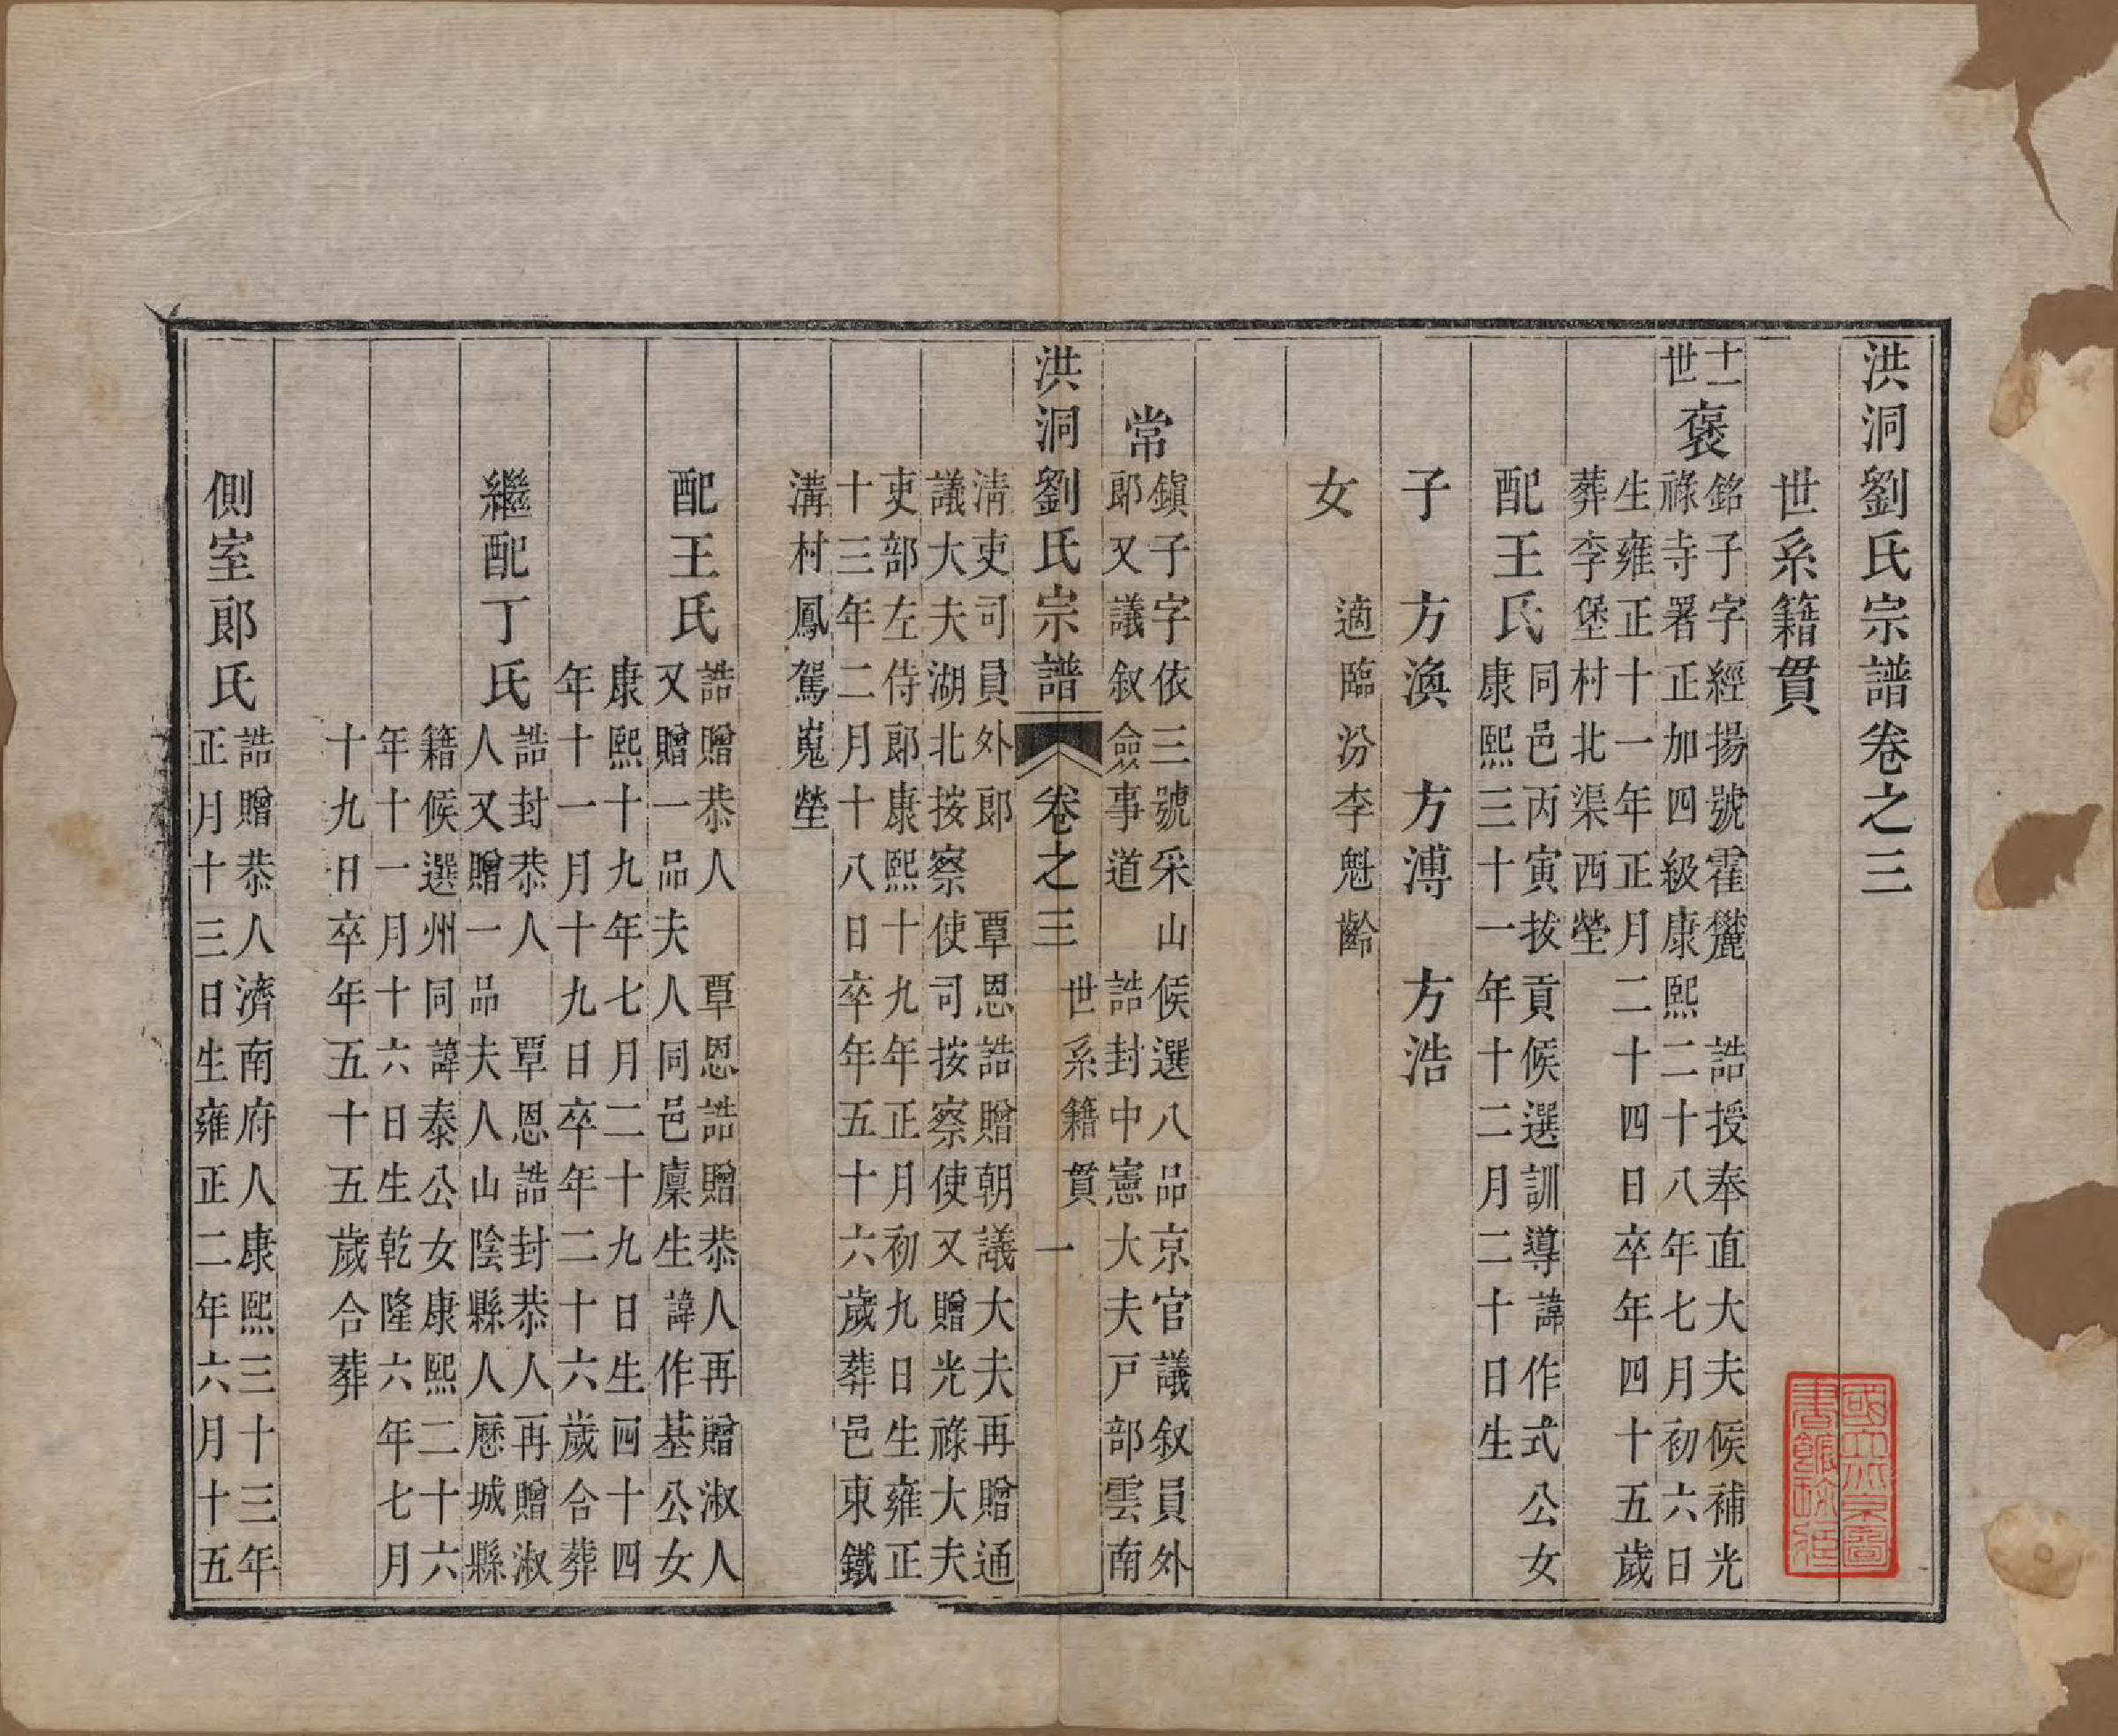 洪洞劉氏宗譜卷之三
世系籍貫
十一世
褒
銘子字經揚號霍麓　誥授奉直大夫候補光
祿寺署正加四級康熙二十八年七月初六日
生雍正十一年正月二十四日卒年四十五歲
葬李堡村北渠西塋
配王氏
同邑丙寅拔貢候選訓導諱作式公女
康熙三十一年十二月二十日生
子　方渙　方溥　方浩
女　適臨汾李魁齡
常
鎮子字依三號采山候選八品京官議叙員外
郎又議叙僉事道　誥封中憲大夫戸部雲南
洪洞劉氏宗譜　卷之三　世系籍貫　一
淸吏司員外郎　覃恩誥贈朝議大夫再贈通
議大夫湖北按察使司按察使又贈光祿大夫
吏部左侍郎康熙十九年正月初九日生雍正
十三年二月十八日卒年五十六歲葬邑東鐵
溝村鳳駕嵬塋
配王氏
誥贈恭人　覃恩誥贈恭人再贈淑人
又贈一品夫人同邑廩生諱作基公女
康熙十九年七月二十九日生四十四
年十一月十九日卒年二十六歲合葬
繼配丁氏
誥封恭人　覃恩誥封恭人再贈淑
人又贈一品夫人山陰縣人歷城縣
籍候選州同諱泰公女康熙二十六
年十一月十六日生乾隆六年七月
十九日卒年五十五歲合葬
側室郎氏
誥贈恭人濟南府人康熙三十三年
正月十三日生雍正二年六月十五
國立北京圖
書館珍藏